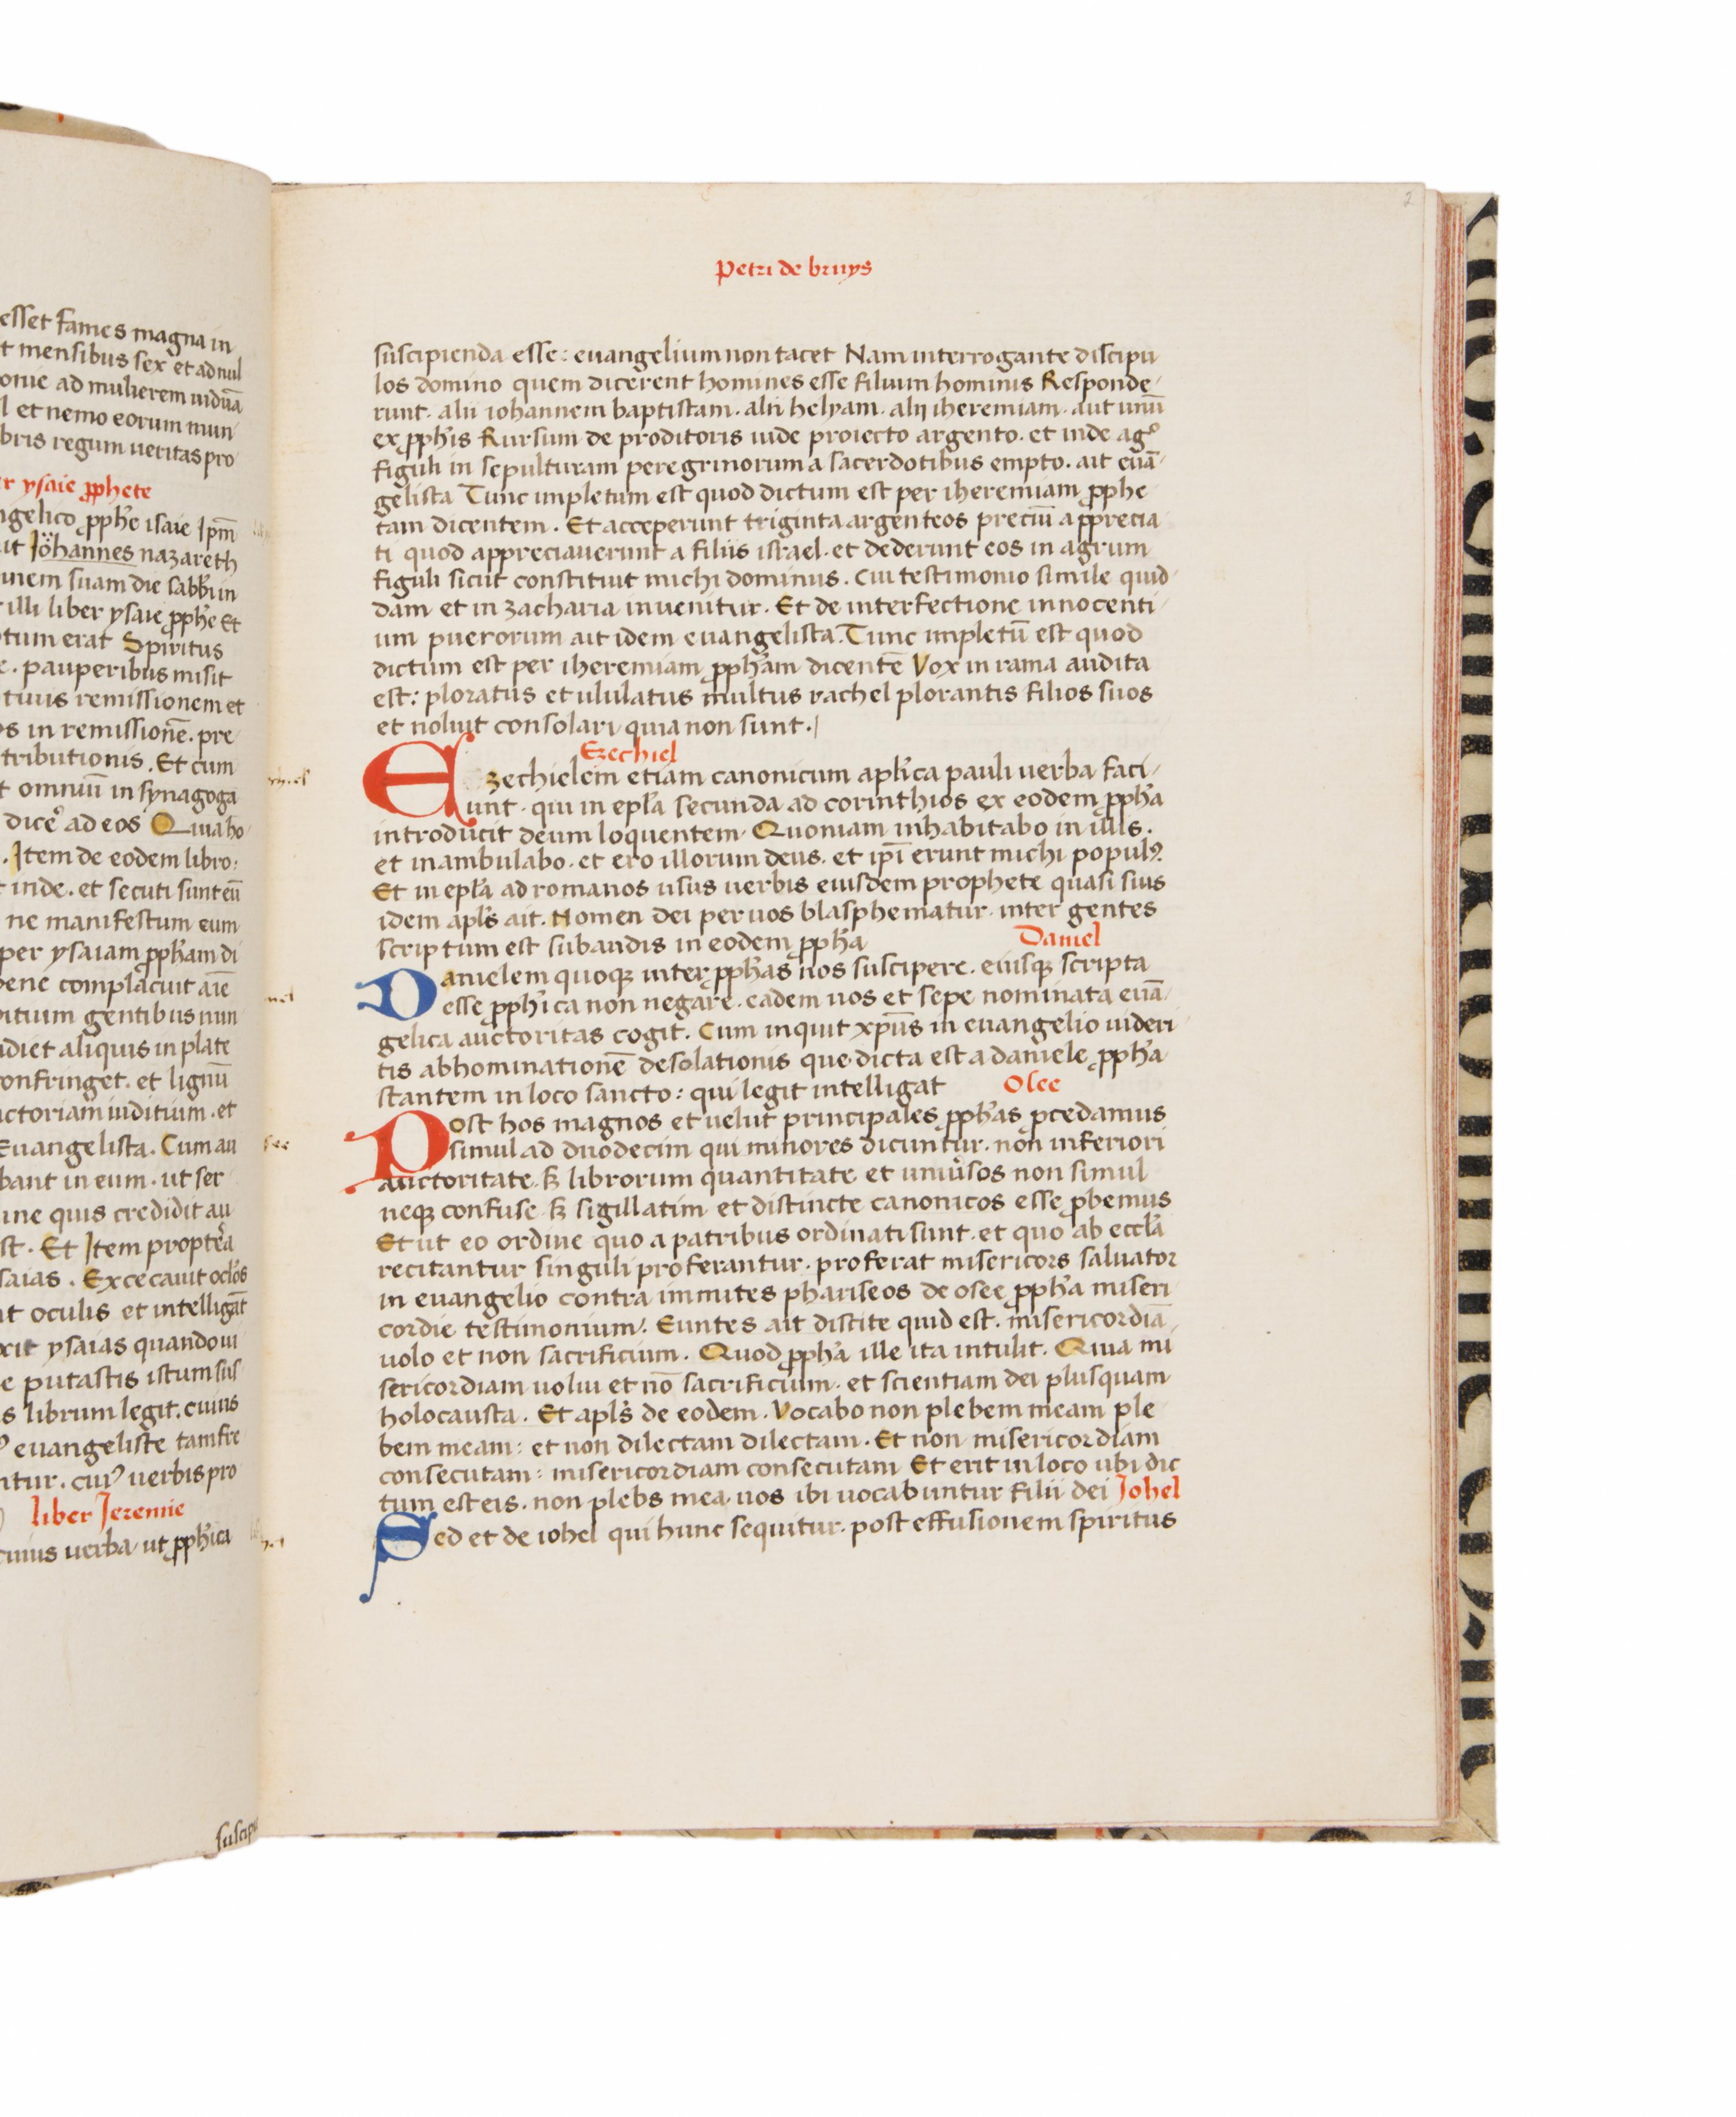 esset fames magna in
t mensibus sex et ad nul
ad mulierem uiduā
l et nemo eorum mun
bris regum ueritas pro
r ysaie ꝓphete
ngelico ꝓph'e isaie Ipm̄
it Johannes nazareth
inem suam die sabb'i in
illi liber ysaie ꝓph'e Et
tum erat Spiritus
e . pauperibus misit
tiuis remissionem et
os in remissionē. pre
tributionis . Et cum
t omniū in synagoga
dicē ad eos Quia ho
. Item de eodem libro:
t inde . et secuti sunt eū
ne manifestum eum
per ysaiam ꝓph'am di
bene complacuit aīe
ditium gentibus nun
udiet aliquis in plate
confringet . et lignū
uictoriam iuditium . et
Euangelista . Cum au
bant in eum . ut ser
ine quis credidit au
st . Et Item propt'ea
saias . Excecauit oc'los
nt oculis et intelligāt
xit ysaias quando ui
e putastis istum sus
s librum legit. cuius
euangeliste tam fre
ntur . cuiꝰ uerbis pro
liber Jeremie
cuius uerba ut ꝓph'ica
Petri de bruys
2
suscipienda esse : euangelium non tacet Nam interrogante discipu
los domino quem dicerent homines esse filium hominis Responde
runt . alii iohannem baptistam . alii helyam . alij iheremiam . aut unū
ex ꝓph'is Rursum de proditoris iude proiecto argento . et inde ag°
figuli in sepulturam peregrinorum a sacerdotibus empto . ait euā
gelista Tunc impletum est quod dictum est per iheremiam ꝓphe
tam dicentem . Et acceperunt triginta argenteos preciū apprecia
ti quod appreciauerunt a filiis israel . et dederunt eos in agrum
figuli sicut constituit michi dominus . Cui testimonio simile quid
dam et in zacharia inuenitur . Et de interfectione innocenti
um puerorum ait idem euangelista . Tunc impletū est quod
dictum est per iheremiam ꝓph'am dicentē Vox in rama audita
est : ploratus et ululatus multus rachel plorantis filios suos
et noluit consolari quia non sunt .
Ezechiel
Ezechielem etiam canonicum apl'ica pauli uerba faci
unt . qui in epl'a secunda ad corinthios ex eodem ꝓph'a
introducit deum loquentem . Quoniam inhabitabo in illis .
et inambulabo . et ero illorum deus . et ip̄i erunt michi populꝰ
Et in epl'a ad romanos usus uerbis eiusdem prophete quasi suis
idem apl's ait . Nomen dei per uos blasphematur . inter gentes
scriptum est subandis in eodem ꝓph'a
Daniel
Danielem quoqꝫ inter ꝓph'as uos suscipere . eiusqꝫ scripta
esse ꝓph'ica non negare . eadem uos et sepe nominata euā
gelica auctoritas cogit . Cum inquit xp̄us in euangelio uideri
tis abhominationē desolationis que dicta est a daniele ꝓph'a
stantem in loco sancto : qui legit intelligat
Osee
Post hos magnos et uelut principales ꝓph'as ꝓcedamus
simul ad duodecim qui minores dicuntur . non inferiori
auctoritate . sꝫ librorum quantitate et uniu'sos non simul
neqꝫ confuse . sꝫ sigillatim et distincte canonicos esse ꝓbemus
Et ut eo ordine quo a patribus ordinati sunt . et quo ab eccl'a
recitantur singuli proferantur . proferat misericors saluator
in euangelio contra immites phariseos de osee ꝓph'a miseri
cordie testimonium . Euntes ait discite quid est . misericordiā
uolo et non sacrificium . Quod ꝓph'a ille ita intulit . Quia mi
sericordiam uolui et nō sacrificium . et scientiam dei plusquam
holocausta . Et apl's de eodem . Vocabo non plebem meam ple
bem meam : et non dilectam dilectam . Et non misericordiam
consecutam : misericordiam consecutam Et erit in loco ubi dic
tum est eis . non plebs mea uos ibi uocabuntur filii dei Johel
Sed et de iohel qui hunc sequitur . post effusionem spiritus